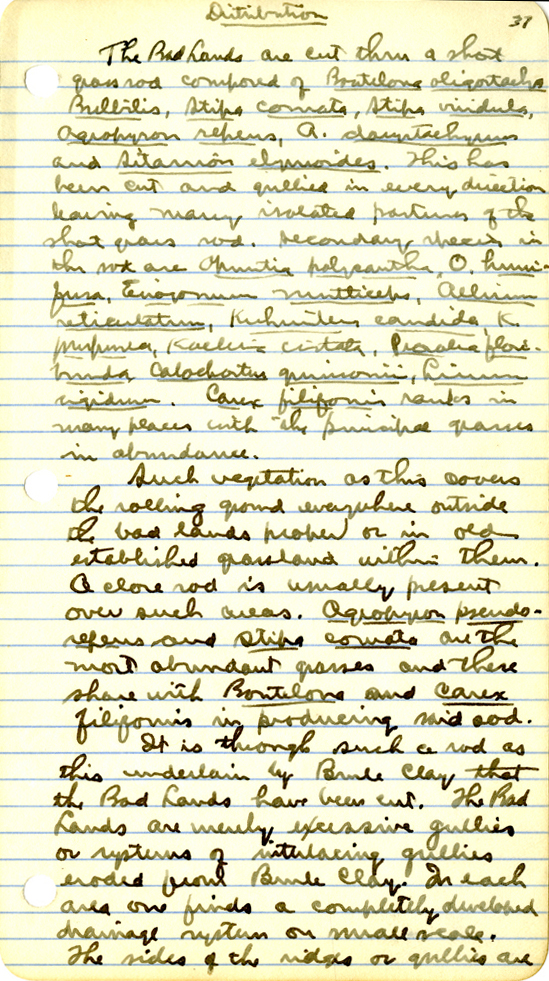 Distribution
37
The Bad Lands are cut thru a short
grass sod composed of Bouteloua oligostachya
Bulbilis, Stipa comata, Stipa viridula,
Agropyron repens, A. dasystachyum
and Sitanion elymoides. This has
been cut and gullied in every direction
leaving many isolated portions of the
short grass sod. Secondary species in
the sod are Opuntia polyacantha, O. humi-
fusa, Eriogonum multiceps, Allium
reticulatum, Kuhnistera candida, K.
purpurea, Koeleria cristata, Psoralea flori-
bunda, Calochortus gunnisonii, Linum
rigidum. Carex filifomis ranks in
many places with the principal grasses
in abundance.
Such vegetation as this covers
the rolling ground everywhere outside
the bad lands proper or in old
established grassland within them.
A close sod is usually present
over such areas. Agropyron pseudo-
repens and Stipa comata are the
most abundant grasses and these
share with Bouteloua and Carex
filifomis in producing said sod.
It is through such a sod as
this underlain by Brule Clay that
the Bad Lands have been cut. The Bad
Lands are merely excessive gullies
or systems of interlacing gullies
eroded from Brule Clay. In each
area one finds a completely developed
drainage system on small scale.
The sides of the ridges or gullies are